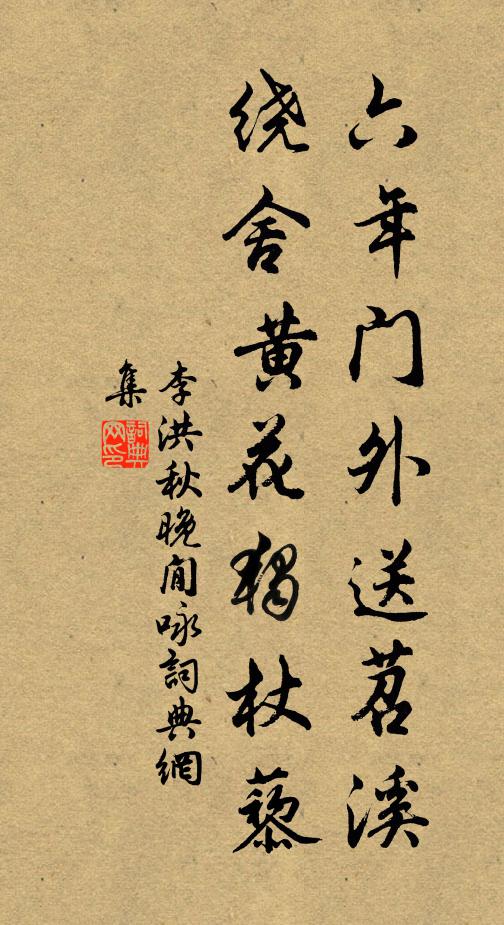 六年门外送苕溪
绕舍黄花独杖藜
李洪秋晚閒咏詞典網
集
詞典网印